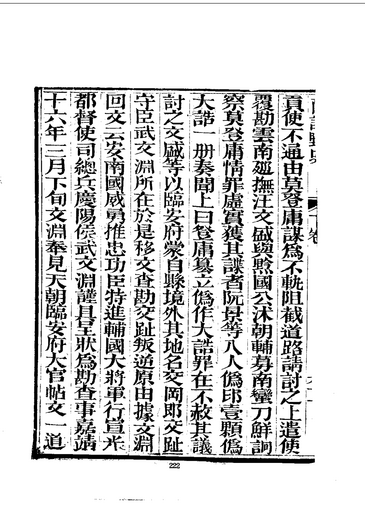 貢使不通由莫登庸謀為不軌阻截道路請討之上遣使
覆勘雲南廵撫汪文盛與黔國公沐朝輔募南蠻刀鮮詗
察莫登庸情罪虛實獲其諜者阮景等八人偽印壹顆偽
大誥一册奏聞上曰登庸簒立偽作大誥罪在不赦其議
討之文盛等以臨安府蒙自縣境外其地名交岡即交趾
守臣武文淵所在於是移文查勘交趾叛逆原由據文淵
回文云安南國威勇推忠功臣特進輔國大將軍行宣光
都督使司總兵慶陽侯武文淵謹具呈狀為勘查事嘉靖
十六年三月下旬文淵奉見天朝臨安府大官帖文一道
222